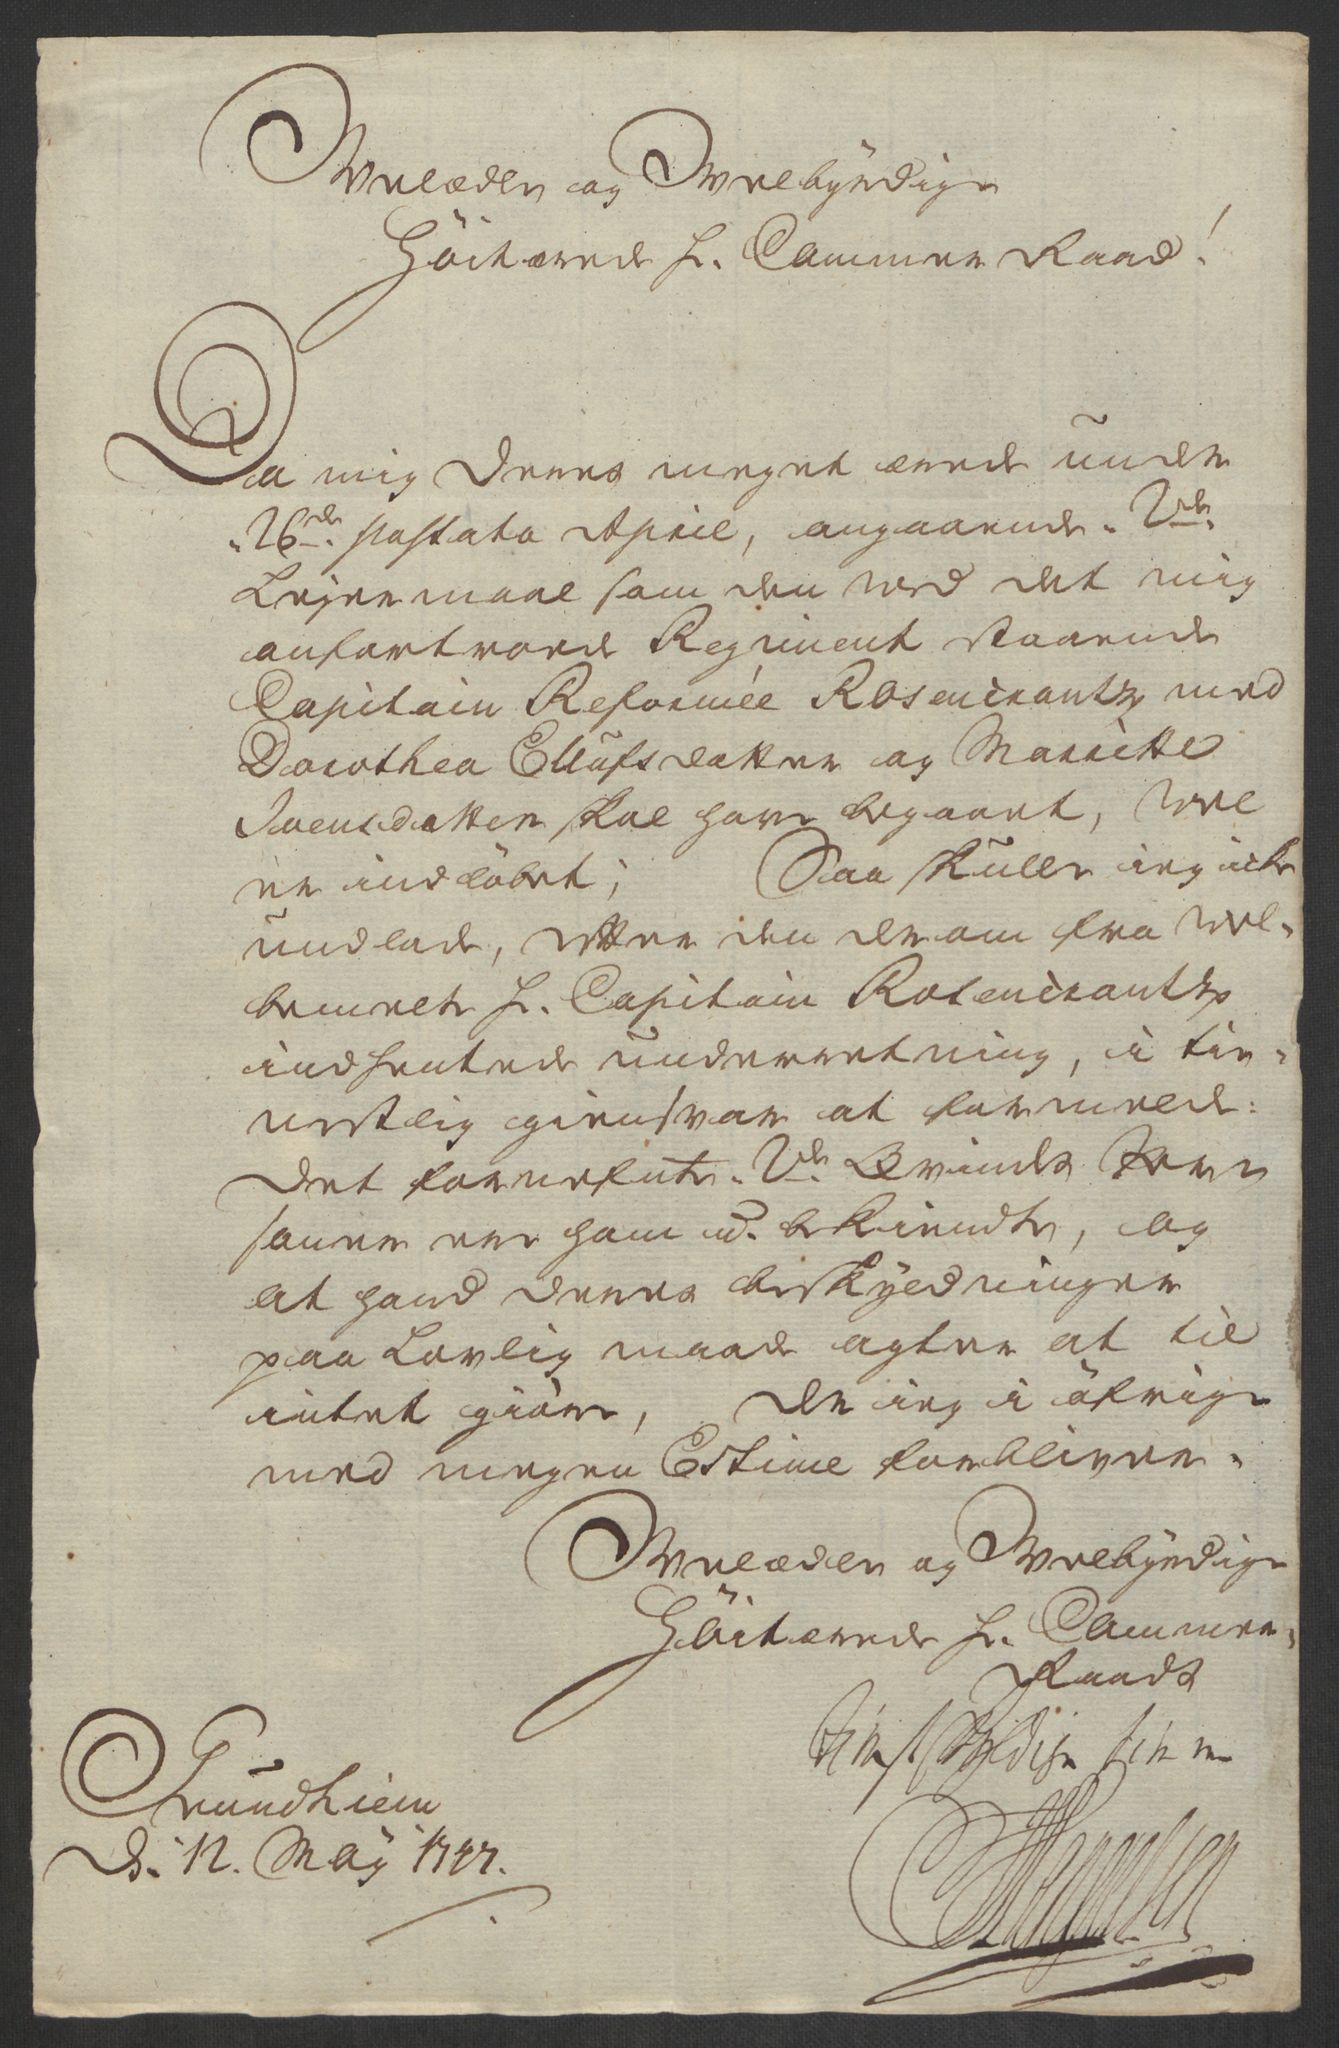 Welædle og Welbÿrdige
Höitærede Hr. Cammer Raad!
Da mig Deres meget ærede under
26de passato April, angaaende 2de
Lejermaal som den ved det mig
anfortroede Regiment staaende
Capitain Reformée Rosencrantz med
Dorothea Ellufsdatter og Maritte
Joensdatter skal have begaaet, vel
er indlöbet; Saa skulle ieg icke
undlade, efter den derom fra vel-
bemelte Hr. Capitain Rosencrantz
indhentede underretning, i tie-
nestlig giensvar at formelde:
Det fornefnte 2de Qvinds Per-
soner ere ham u-bekiendte, og
at hand deres beskÿldninger
paa Lovlig maade agter at til
intet giöre, De ieg i öfrige
med megen Estime forbliver
Welædle og Welbÿrdige
Höitærede Hr. Cammer-
Raads
tienstskyldige tiener
Trundhiem
d: 12. Maÿ 1747.